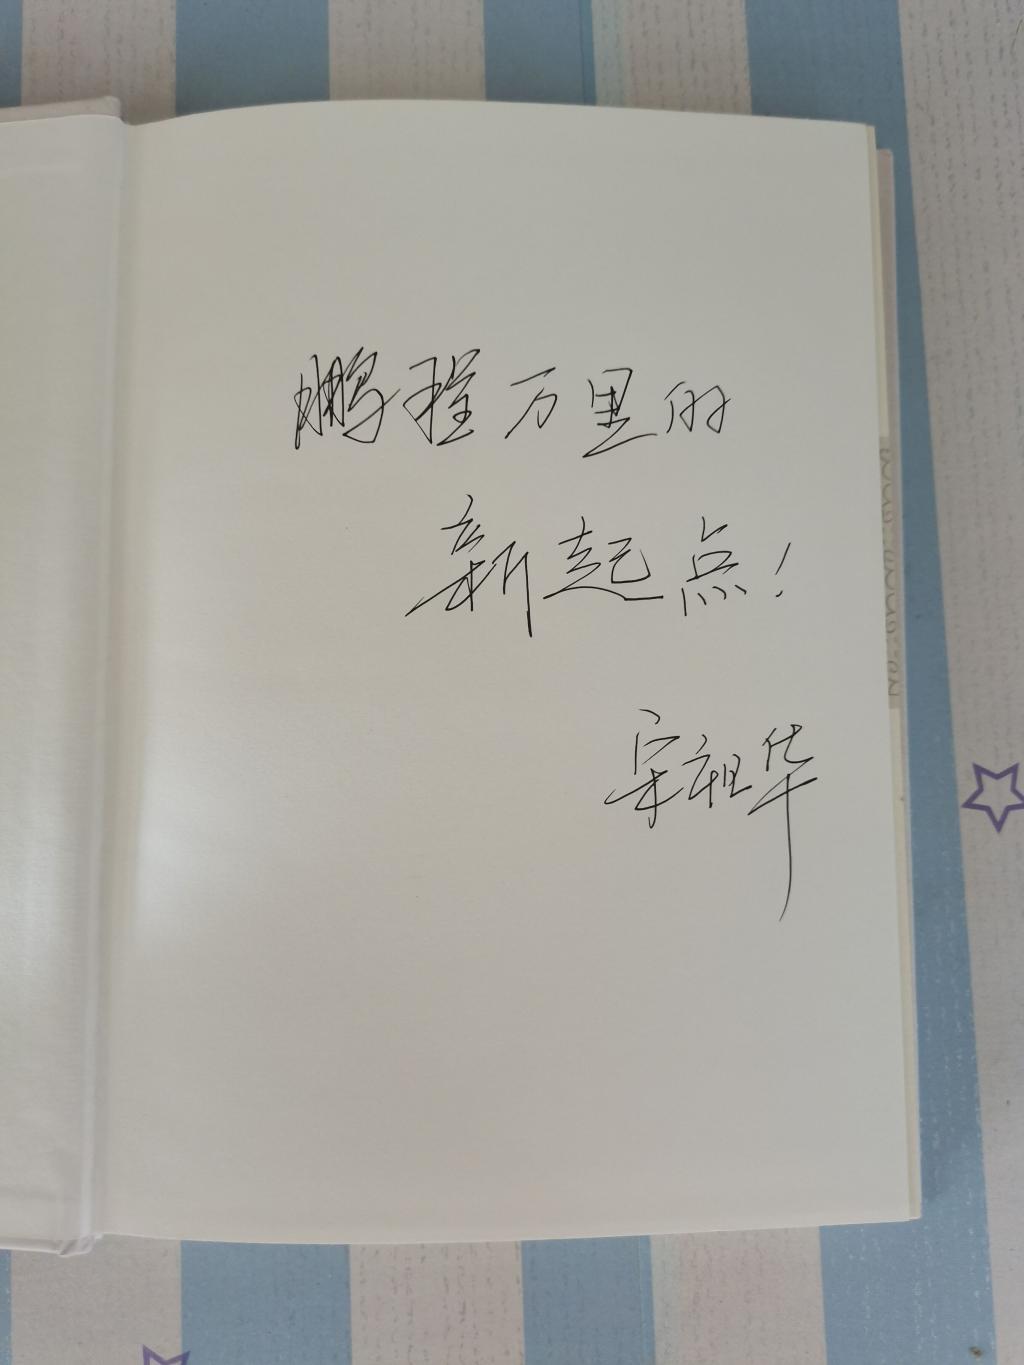 鹏程万里的
新起点!
宋祖华